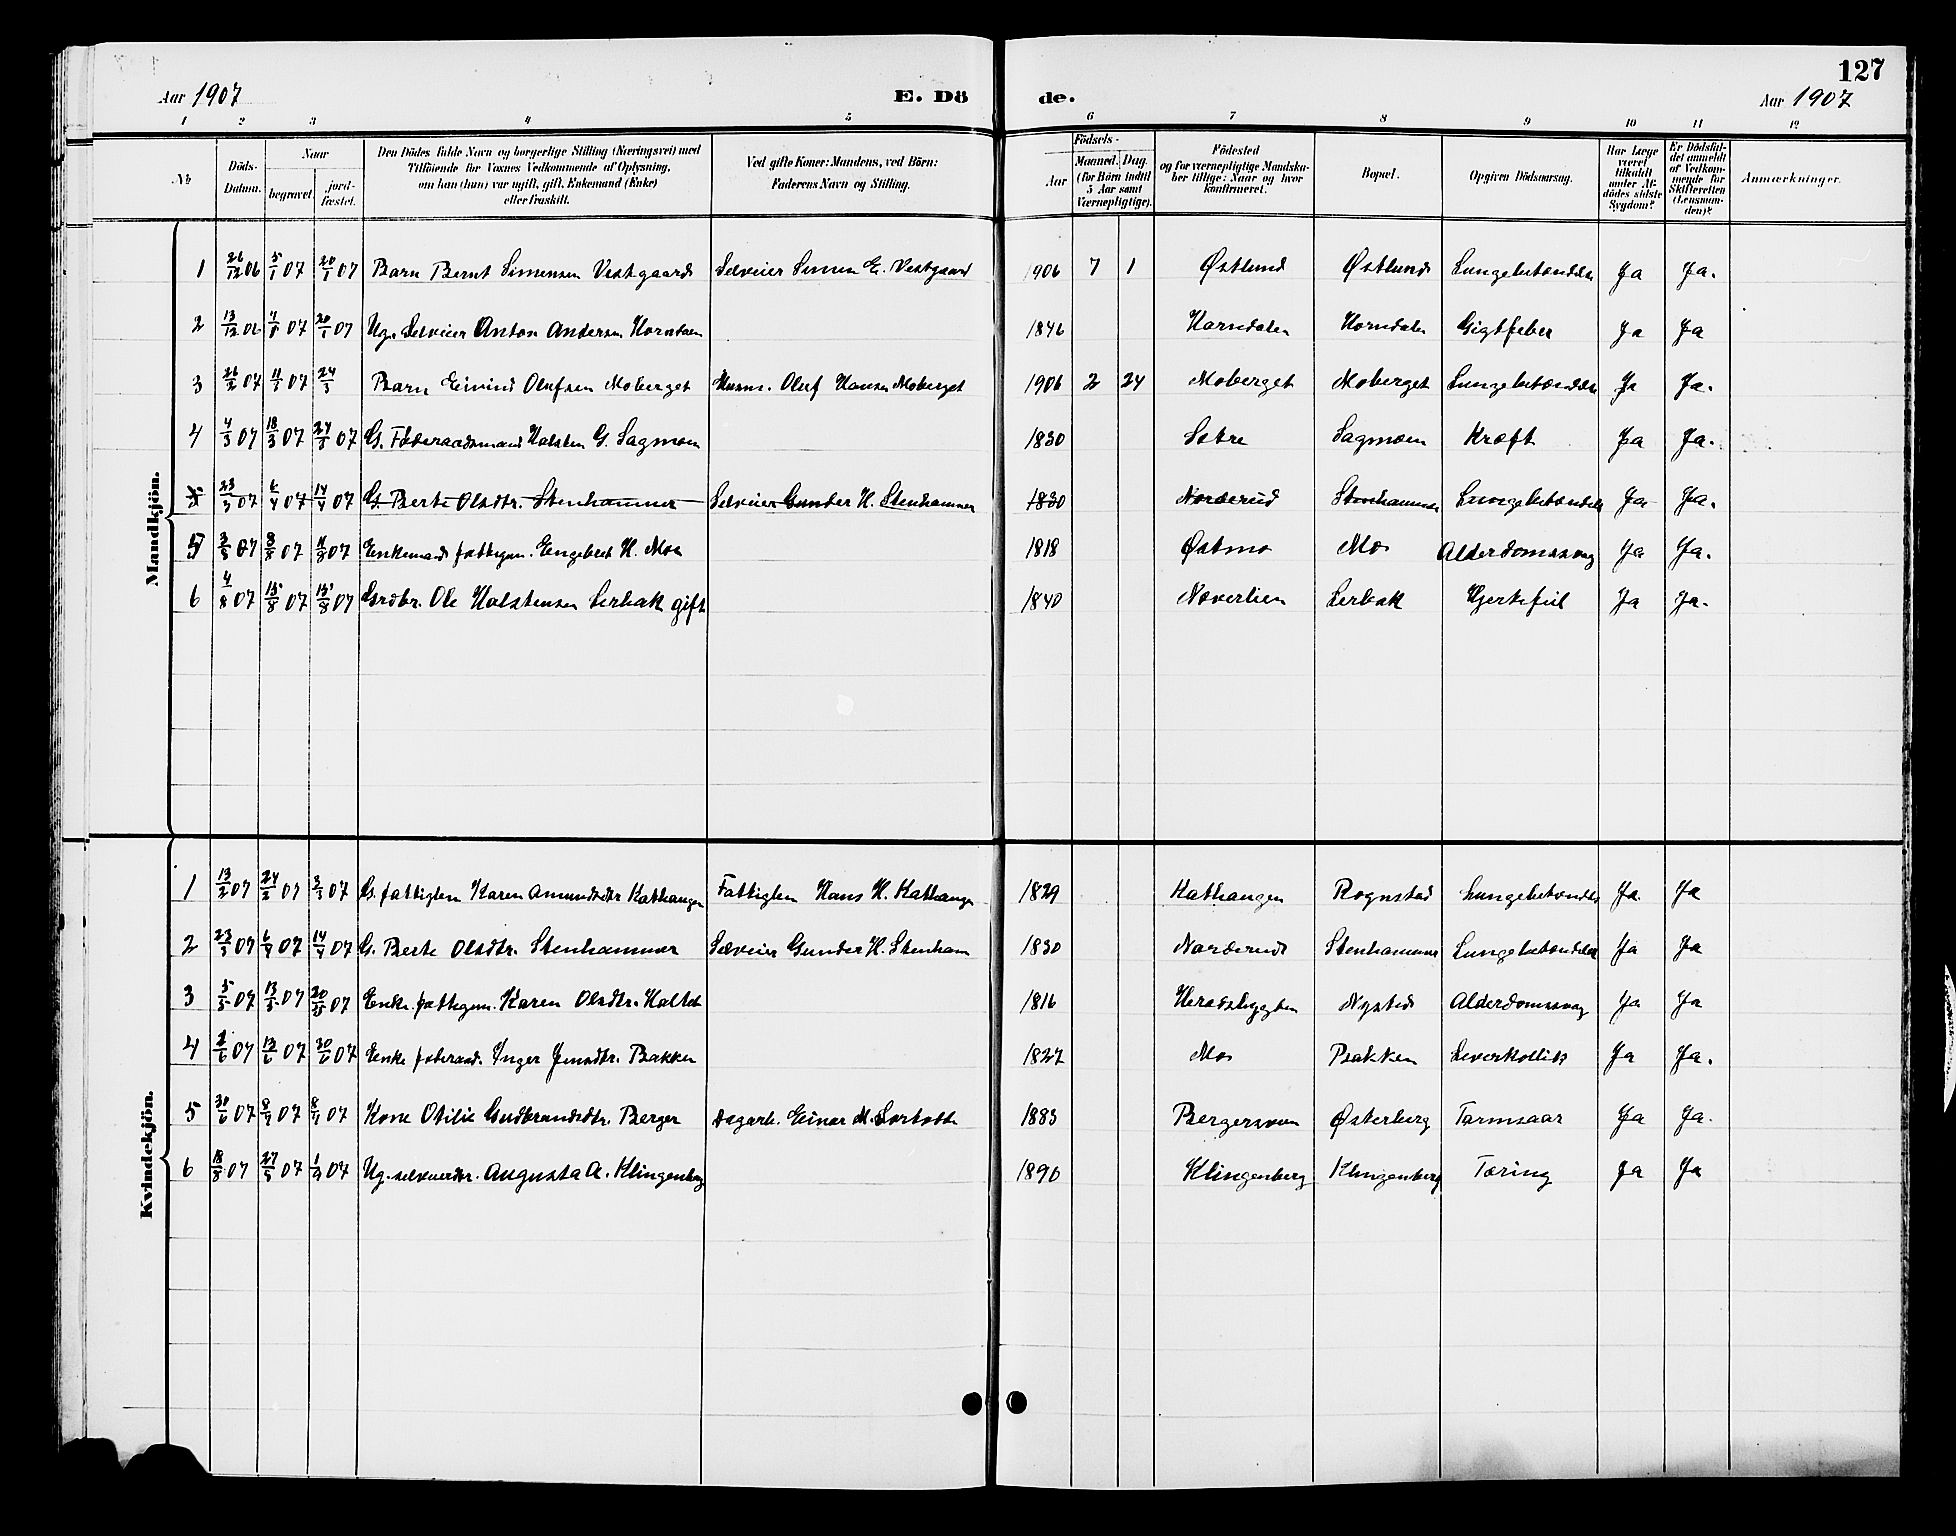 127
Aar 1907 E. Dö de. Aar 1907
1 2 3 4 5 6 7 8 9 10 11 12
No
Döds-Datum.
Naar begravet. jordfæstet.
Den Dödes fulde Navn og borgerlige Stilling (Næringsvei) med Tilföiende for Voxnes Vedkommende af Oplysning, om han (hun) var ugift, gift, Enkemand (Enke) eller fraskilt.
Ved gifte Koner: Mandens, ved Börn: Faderens Navn og Stilling.
Födsels- Aar Maaned. Dag. (for Börn indtil 5 Aar samt Værnepligtige).
Födested og for værnepligtige Mandskaber tillige: Naar og hvor konfirmeret.
Bopæl.
Opgiven Dödsaarsag.
Har Læge været tilkaldt under Afdödes sidste Sygdom?
Er Dödsfaldet anmeldt af Vedkommende for Skifteretten (Lensmanden)?
Anmærkninger.
Mandkjön.
1 26/12 06 5/1 07 20/1 07 Barn Bernt Simensen Vestgaard Selveier Simen E. Vestgaard 1906 7 1 Østlund Østlund Lungebetændelse Ja Ja.
2 13/12 06 4/1 07 20/1 07 Ug. Selveier Anton Andersen Horndalen 1846 Horndalen Horndalen Gigtfeber Ja Ja
3 26/2 07 11/3 07 24/3 Barn Eivind Olufsen Moberget Husm. Oluf Hansen Moberget 1906 2 24 Moberget Moberget Lungebetændelse Ja Ja.
4 4/3 07 18/3 07 24/3 07 G. Föderaadsmand Halsten G. Sagmoen 1830 Sætre Sagmoen Kræft Ja Ja.
5 23/3 07 6/4 07 14/4 07 G. Berte Olsdtr. Stenhammer Selveier Gunder H. Stenhammer 1830 Norderud Stenhammer Lungebetændelse Ja Ja.
5 3/8 07 8/8 07 11/8 07 Enkemand fattigm. Engebret H. Moe 1818 Østmo Mo Alderdomssvag Ja Ja.
6 4/8 07 15/8 07 15/8 07 Grdbr. Ole Halstensen Lerbak gift 1840 Næverlien Lerbak Hjertefeil Ja Ja.
Kvindekjön.
1 13/2 07 24/2 07 3/3 07 G. fattiglem Karen Amundsdtr Kathaugen Fattiglem Hans H. Kathaugen 1829 Kathaugen Rognstad Lungebetændelse Ja. Ja
2 23/3 07 6/4 07 14/4 07 G. Berte Olsdtr. Stenhammer Selveier Gunder H. Stenham 1830 Norderud Stenhammer Lungebetændelse Ja Ja
3 5/5 07 13/5 07 20/5 07 Enke. fattigm. Karen Olsdtr. Holtet 1816 Heradsbygden Nysted Alderdomssvag Ja Ja
4 13/6 07 30/6 07 Enke föderaad. Inger Jensdtr. Bakken 1827 Mo Bakken Ja Ja.
5 30/6 07 8/7 07 07 Kone Otilie Gudbrandsdtr. Berger Dagarb. Einar M. 1883 Bergersven Østerberg Tarmsaar Ja Ja.
6 18/8 07 27/8 07 1/9 07 Ug. selveierdtr. Augusta A. Klingenberg 1890 Klingenberg Klingenberg Tæring Ja Ja